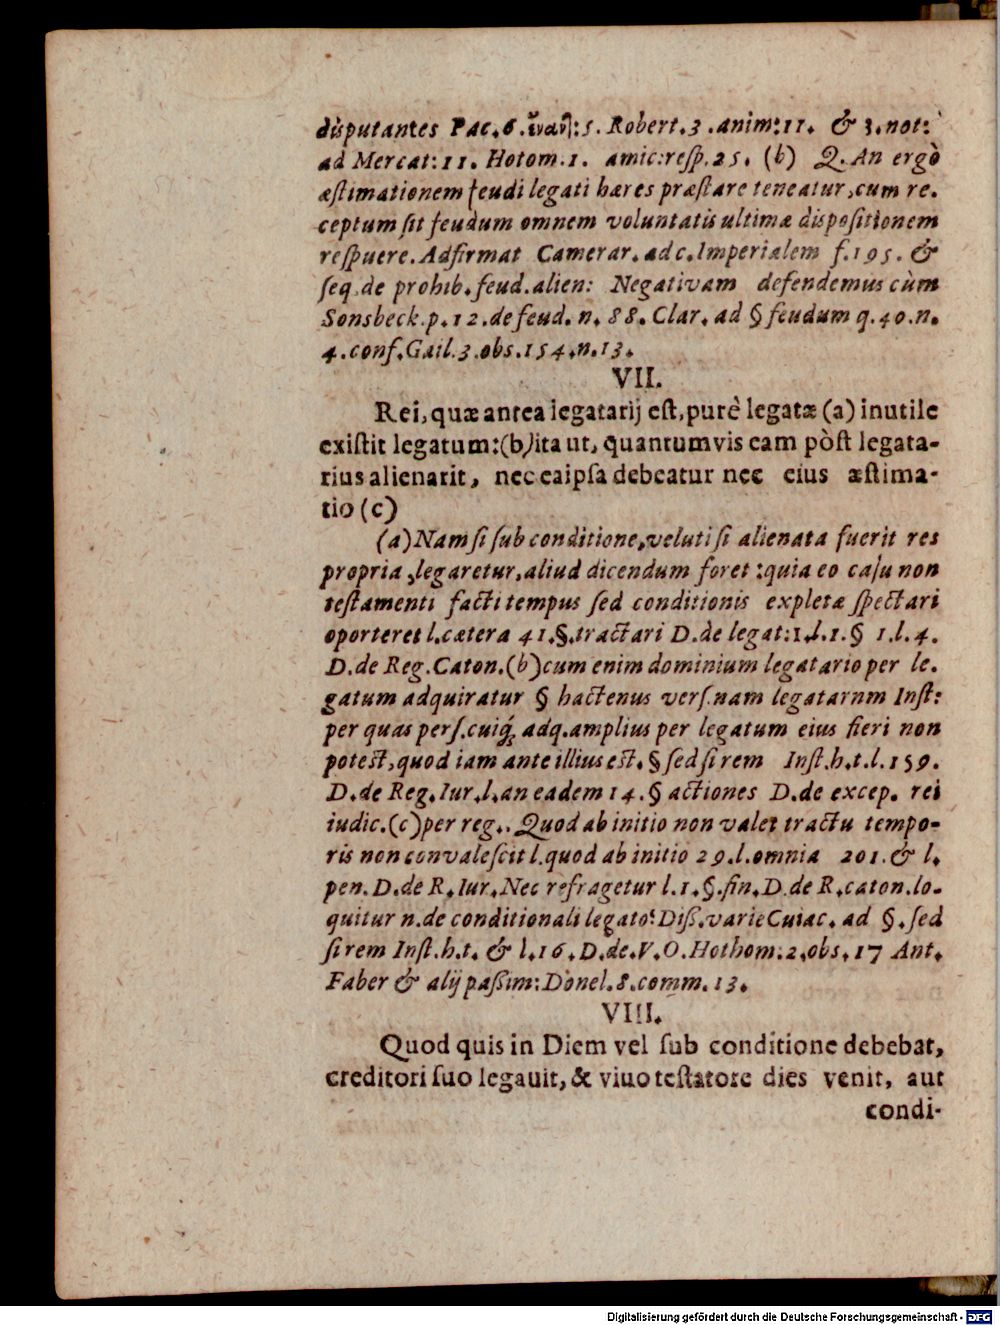 disputantes Pac. 6. ἐναν[]: 5. Robert. 3. anim: 11. & 3. not:
ad Mercat: 11. Hotom. 1. amic: resp. 25. (b) Q. An ergò
æstimationem feudi legati hæres præstare teneatur, cum re.
ceptum sit feudum omnem voluntatis ultimæ dispositionem
respuere. Adfirmat Camerar. ad c. Imperialem f. 195. &
seq. de prohib. feud. alien: Negativam defendemus cùm
Sonsbeck. p. 12. de feud. n. 88. Clar. ad § feudum q. 40. n.
4. conf. Gail. 3. obs. 154. n. 13.
VII.
Rei, quæ antea legatarij est, purè legatæ (a) inutile
existit legatum: (b) ita ut, quantumvis eam pòst legata-
rius alienarit, nec ea ipsa debeatur nec eius æstima-
tio (c)
(a) Nam si sub conditione, veluti si alienata fuerit res
propria, legaretur, aliud dicendum foret: quia eo casu non
testamenti facti tempus sed conditionis expletæ spectari
oporteret l. cætera 41. §. tractari D. de legat: 1. l. 1. § 1. l. 4.
D. de Reg. Caton. (b) cum enim dominium legatario per le.
gatum adquiratur § hactenus vers. nam legatarnm Inst:
per quas pers. cuiq; adq. amplius per legatum eius fieri non
potest, quod iam ante illius est. § sed si rem Inst. h. t. l. 159.
D. de Reg. Iur. l. an eadem 14. § actiones D. de excep. rei
iudic. (c) per reg.. Quod ab initio non valet tractu tempo-
ris non convalescit l. quod ab initio 29. l. omnia 201. & l.
pen. D. de R. Iur. Nec refragetur l. 1. §. fin. D. de R. caton. lo-
quitur n. de conditionali legato: Diss. varie Cuiac. ad §. sed
si rem Inst. h. t. & l. 16. D. de. V. O. Hothom: 2. obs. 17 Ant.
Faber & alij passim: Donel. 8. comm. 13.
VIII.
Quod quis in Diem vel sub conditione debebat,
creditori suo legauit, & viuo testatore dies venit, aut
condi-
Digitalisierung gefördert durch die Deutsche Forschungsgemeinschaft - DFG